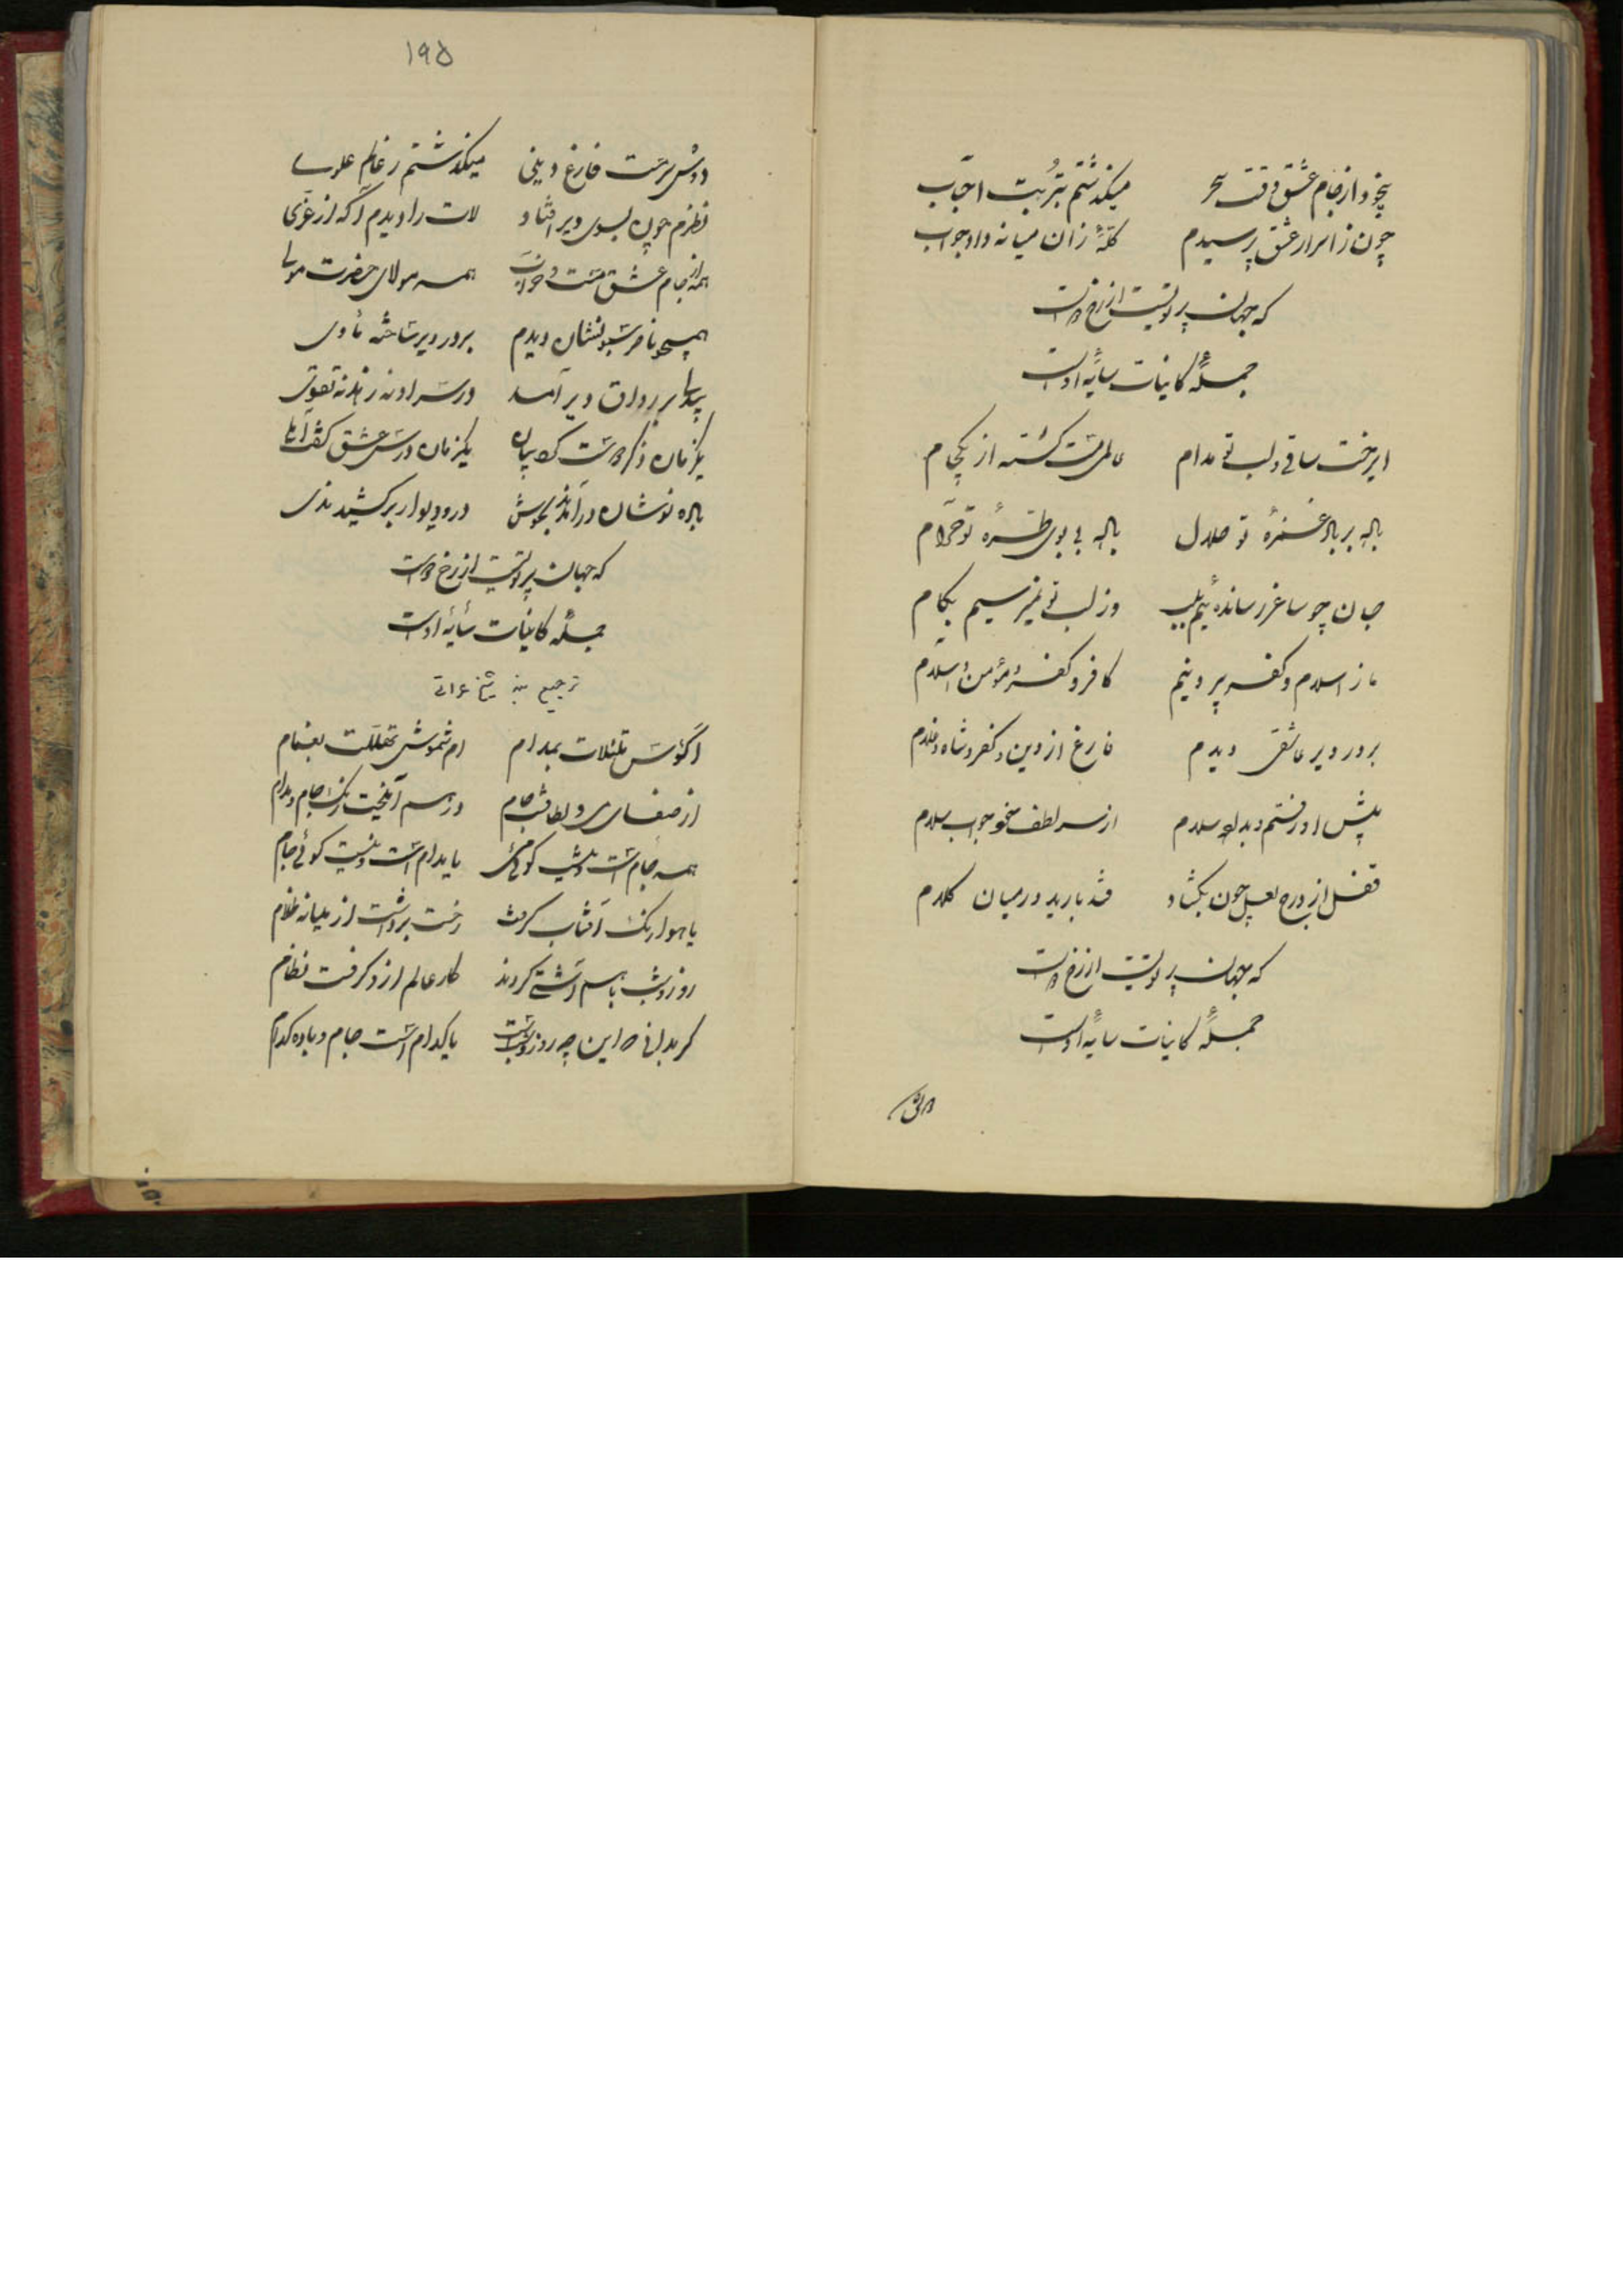 بیخود از جام عشق وقت سحر میگذشتم بتربت احباب
چون ز اسرار عشق پرسیدم کلهٔ زان میانه داد جواب
که جهان پرتویست از رخ دوست
جملهٔ کاینات سایهٔ اوست
ایرخت ساقی و لب تو مدام عالمی مست گشته از یکجام
باده بر یاد غمزهٔ تو حلال باده بی بوی طرهٔ تو حرام
جان چو ساغر رسانده‌ئیم بلب وز لب تو نمیرسیم بکام
ما ز اسلام و کفر بیرونیم کافر و کفر و مؤمن و اسلام
بر در دیر عاشقی دیدم فارغ از دین و کفر و شاه و غلام
پیش او رفتم و بداد سلام از سر لطف خود جواب سلام
قفل از درج لعل چون بگشاد قند بارید در میان کلام
که جهان پرتویست از رخ دوست
جملهٔ کاینات سایهٔ اوست
دوش
۱۹۵
دوش سرمست فارغ دینی میگذشتم ز عالم علوی
نظرم چون بسوی دیر افتاد لات را دیدم آگه از عزی
همه از جام عشق مست و خراب همه مولای حضرت مولی
همچو ناقر شبونشان دیدم بر در دیر ساخته مأوی
بر رواق دیر آمد در سر او نه زهد نه تقوی
یکزمان ذکر دوست کرد بیان یکزمان درس عشق کفت املا
باده نوشان در آمدند بجوش در و دیوار برکشید ندی
که جهان پرتویست از رخ دوست
جملهٔ کاینات سایهٔ اوست
ترجیع بند شیخ عراقی
اکؤس تلئلأت بمدام ام شموش تهللت بغمام
از صفای می و لطافت جام در هم آمیخت رنگ جام و مدام
همه جام است و نیست گوئی می یا مدام است و نیست گوئی جام
یا هوا رنگ آفتاب گرفت رخت برداشت از میانه ظلام
روز و شب با هم آشتی کردند کار عالم از و گرفت نظام
گر ندانی که این چه روز و شبست یا کدام است جام و باده کدام